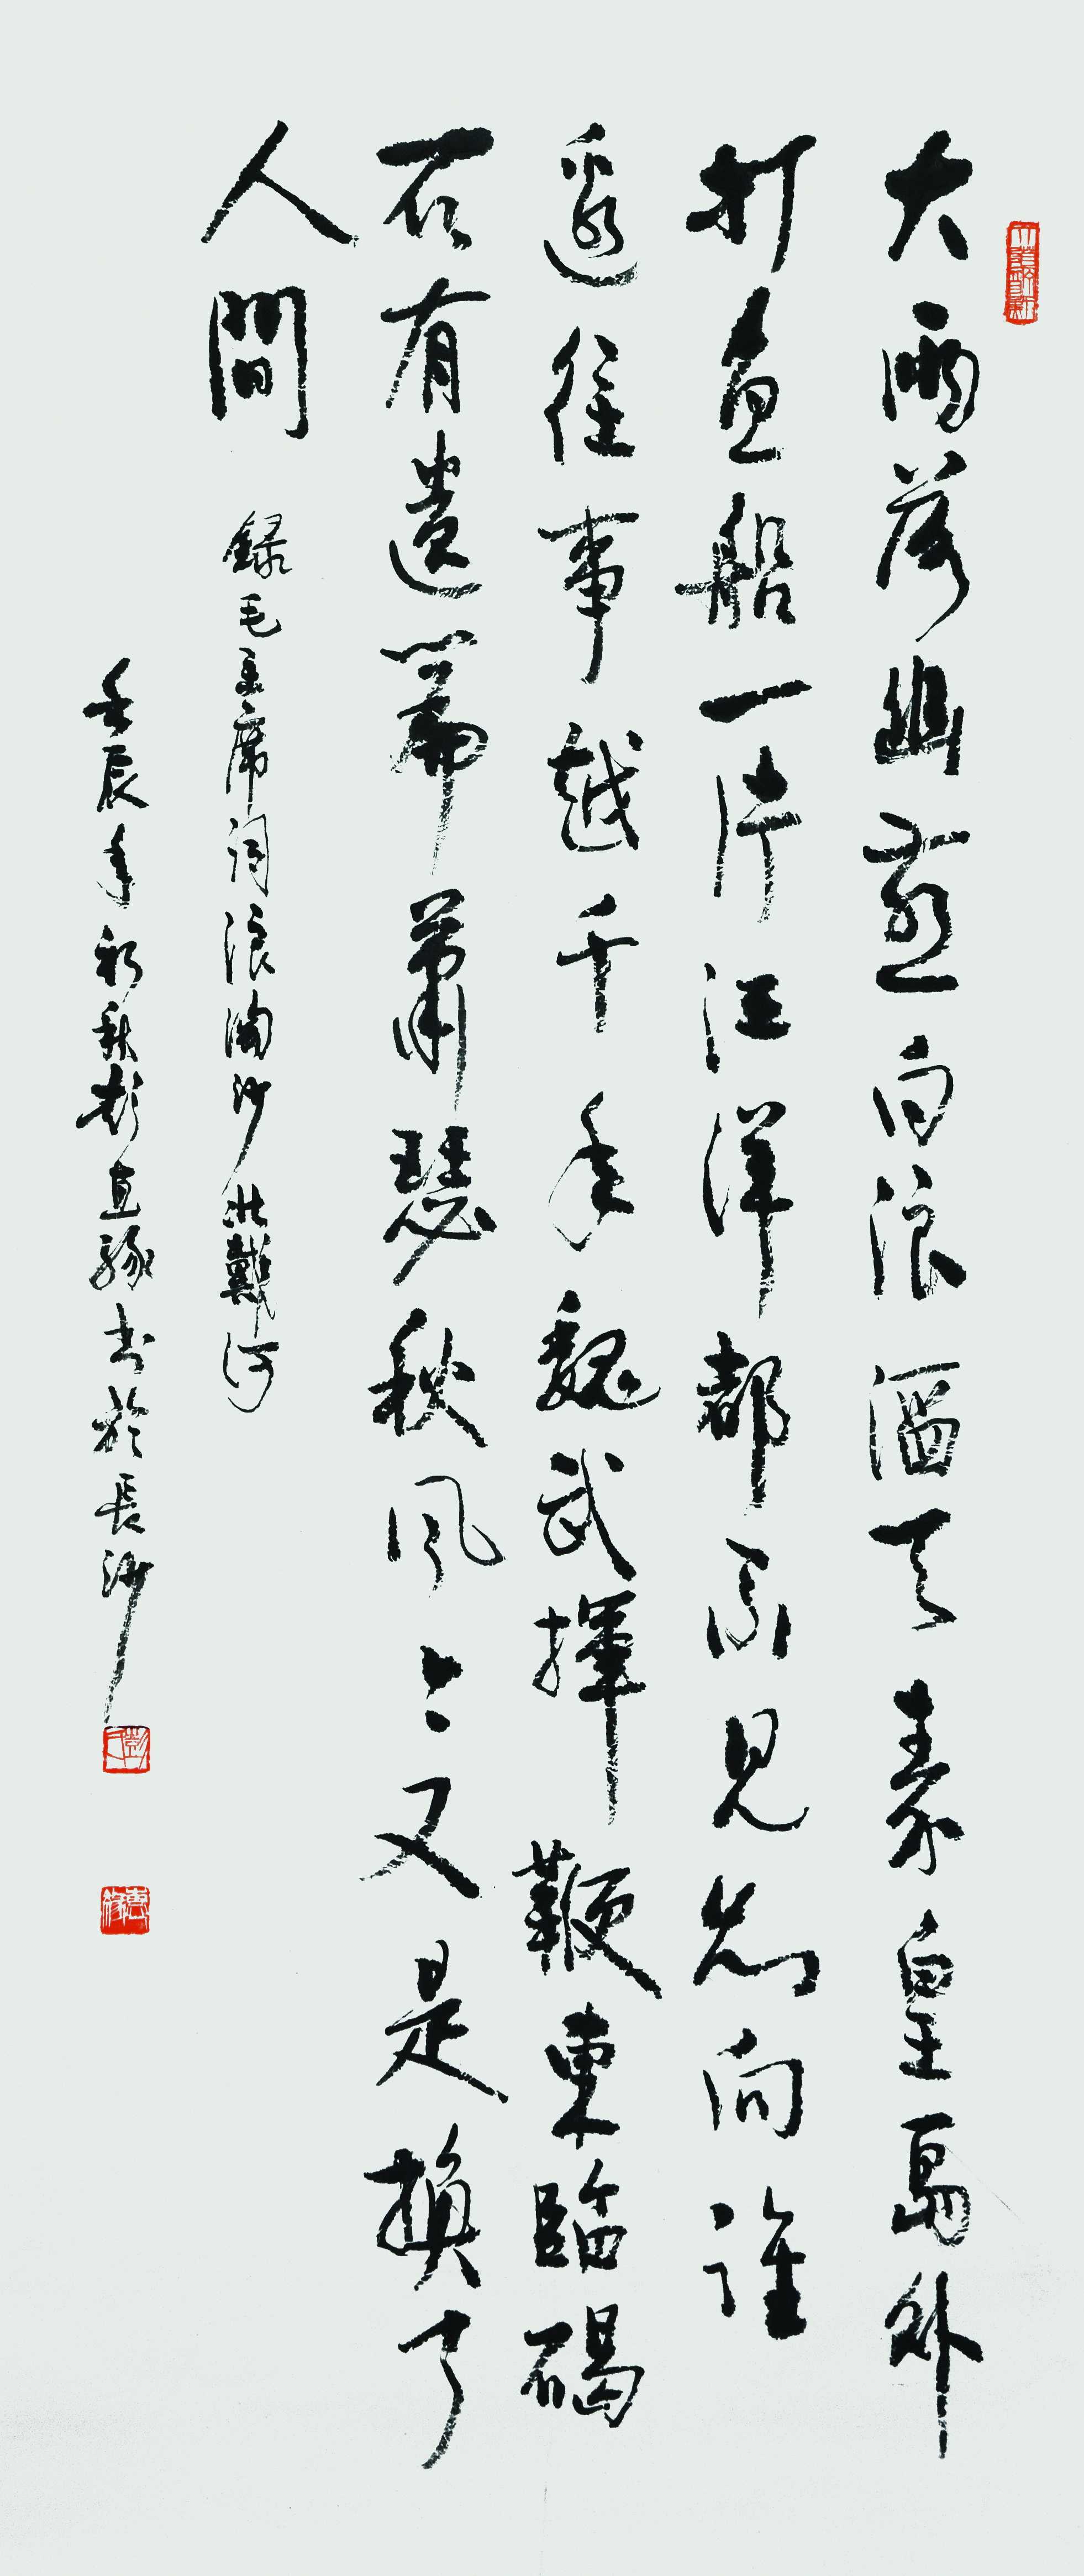 大雨落幽燕白浪滔天秦皇島外
打魚船一片汪洋都不見知向誰
邊往事越千年魏武揮鞭東臨碣
石有遺篇蕭瑟秋風今又是換了
人間
録毛主席詞浪淘沙北戴河
壬辰年初秋彭書於長沙